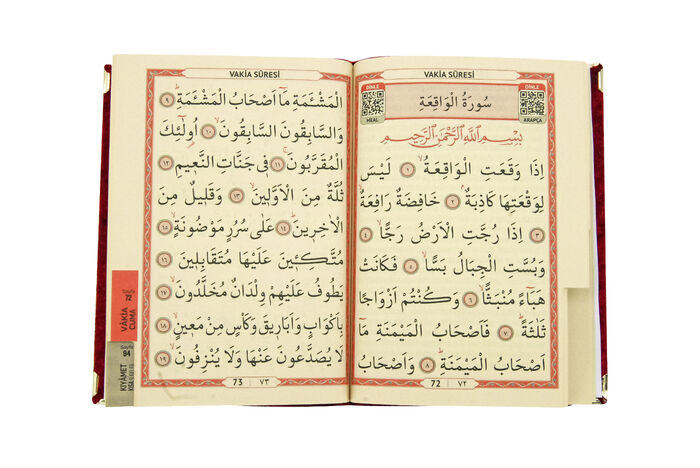 VAKİA SÛRESİ
DİNLE
MEAL
سُورَةُ الْوَاقِعَةِ
DİNLE
ARAPÇA
بِسْمِ اللّٰهِ الرَّحْمٰنِ الرَّحِيمِ
اِذَا وَقَعَتِ الْوَاقِعَةُۙ ١ لَيْسَ
لِوَقْعَتِهَا كَاذِبَةٌۢ ٢ خَافِضَةٌ رَافِعَةٌۙ
٣ اِذَا رُجَّتِ الْاَرْضُ رَجًّاۙ ٤
وَبُسَّتِ الْجِبَالُ بَسًّاۙ ٥ فَكَانَتْ
هَبَٓاءً مُنْبَثًّاۙ ٦ وَكُنْتُمْ اَزْوَاجًا
ثَلٰثَةًۜ ٧ فَاَصْحَابُ الْمَيْمَنَةِ مَٓا
اَصْحَابُ الْمَيْمَنَةِۜ ٨ وَاَصْحَابُ
72 ٧٢
VAKİA SÛRESİ
الْمَشْـَٔمَةِ مَٓا اَصْحَابُ الْمَشْـَٔمَةِۜ ٩
وَالسَّابِقُونَ السَّابِقُونَۙ ١٠ اُو۬لٰٓئِكَ
الْمُقَرَّبُونَۚ ١١ فِي جَنَّاتِ النَّعِيمِ ١٢
ثُلَّةٌ مِنَ الْاَوَّلِينَۙ ١٣ وَقَلِيلٌ مِنَ
الْاٰخِرِينَۜ ١٤ عَلٰى سُرُرٍ مَوْضُونَةٍۙ ١٥
مُتَّكِـِٔينَ عَلَيْهَا مُتَقَابِلِينَ ١٦
يَطُوفُ عَلَيْهِمْ وِلْدَانٌ مُخَلَّدُونَۙ ١٧
بِاَكْوَابٍ وَاَبَارِيقَ وَكَأْسٍ مِنْ مَعِينٍۙ ١٨
لَا يُصَدَّعُونَ عَنْهَا وَلَا يُنْزِفُونَۙ ١٩
73 ٧٣
Sayfa
72
VAKİA
CUMA
Sayfa
94
KIYÂMET